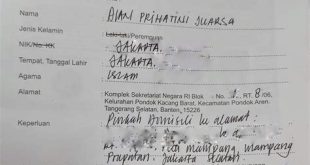 Nama : AJANI PRIHATINI JUARSA
Jenis Kelamin : Laki-laki/Perempuan
NIK/No. KK : JAKARTA
Tempat, Tanggal Lahir : JAKARTA.
Agama : ISLAM
Alamat : Komplek Sekretariat Negara RI Blok RT. 8/06,
Kelurahan Pondok Kacang Barat, Kecamatan Pondok Aren,
Tangerang Selatan, Banten, 15226
Keperluan : Pindah Domisili ke alamat :
mampang, mampang
Prapatan, Jakarta Selatan